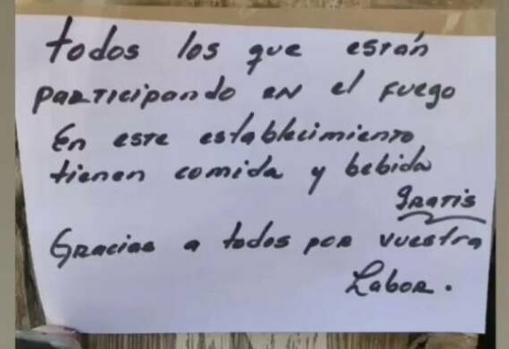 todos los que están
participando en el fuego
En este establecimiento
tienen comida y bebida
gratis
Gracias a todos por vuestra
Labor.